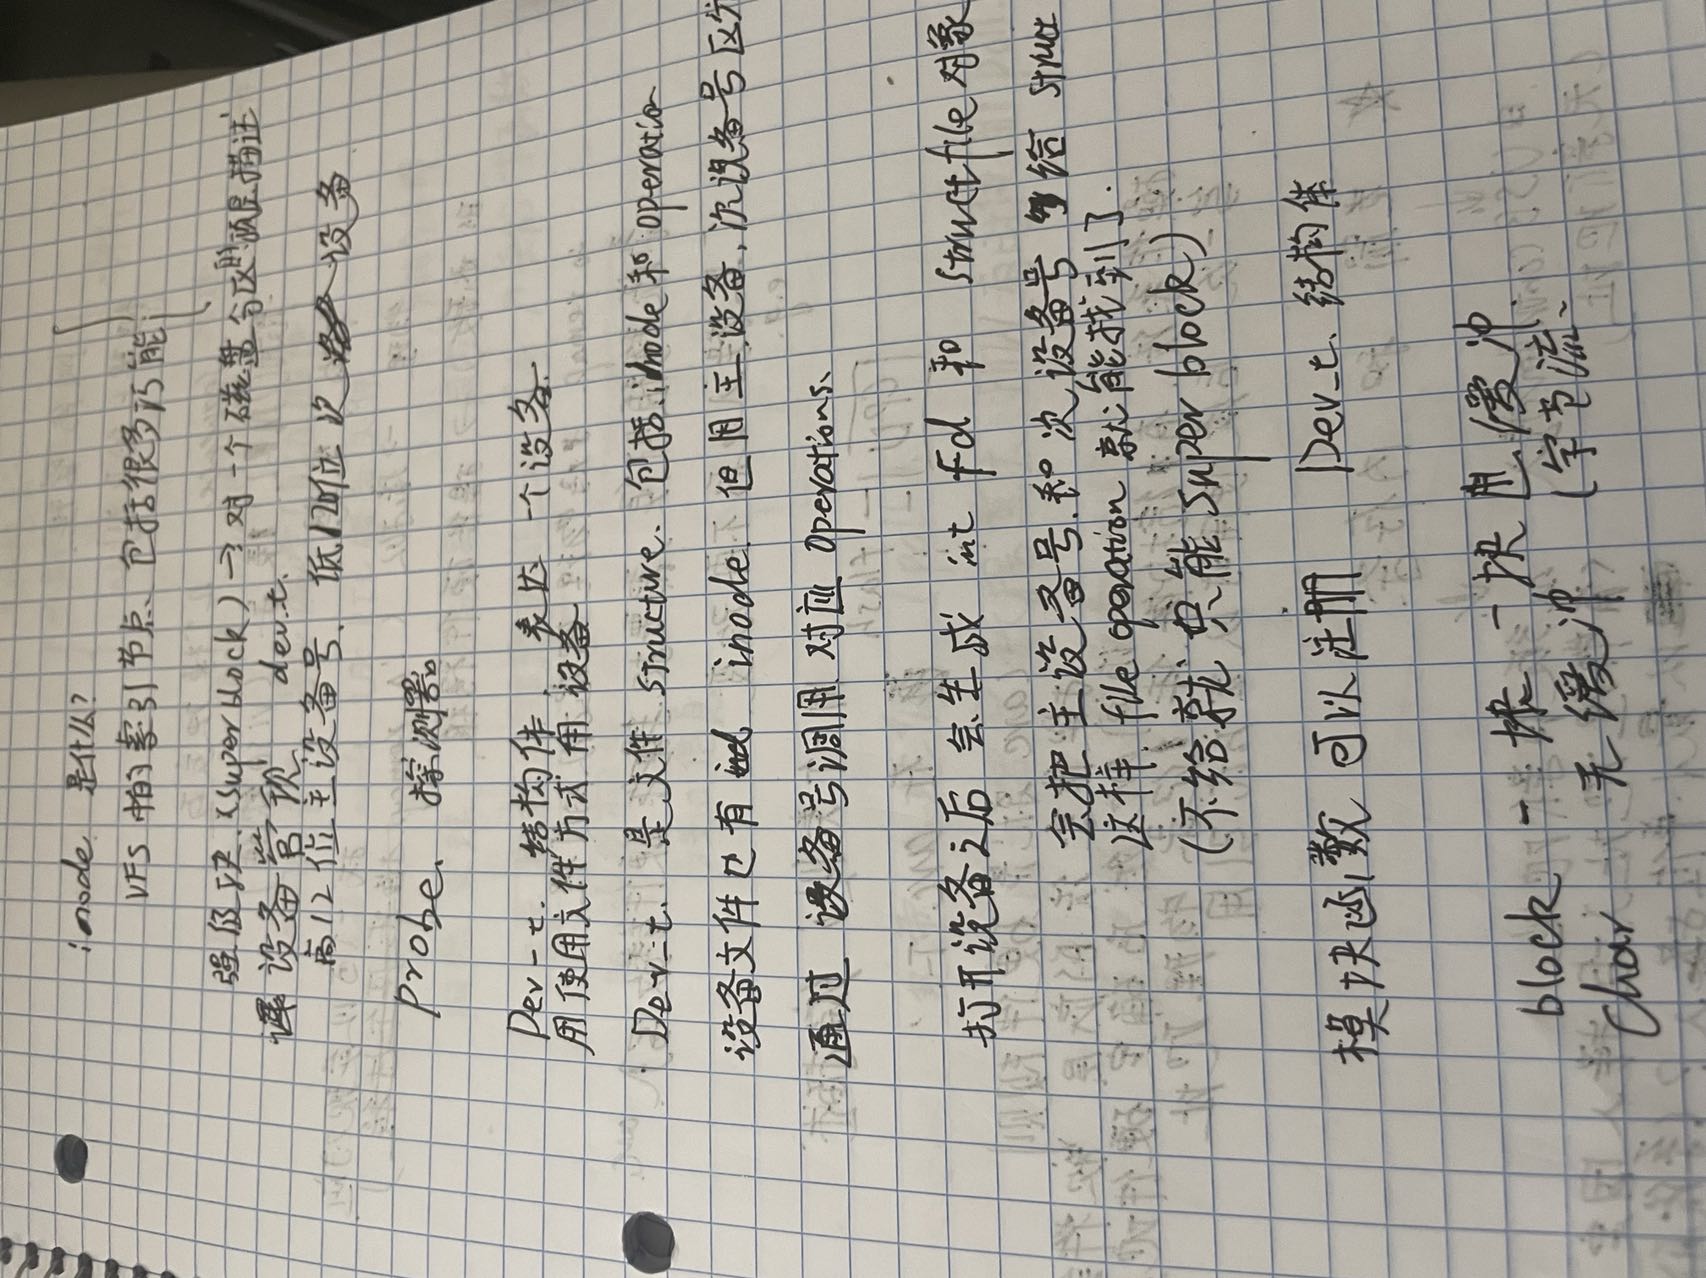 inode 是什么?
VFS 中的索引节点、包括很多功能
强级块.(super block) → 对一个磁盘分区的顶层描述
设备管理 dev.t.
高12位主设备号. 低20位 次 设备
probe. 探测器
Dev-t. 结构体. 表达 一个设备.
用使用文件方式 用 设备
Dev_t. 是文件 structure. 包括 inode 和 operation
设备文件也有 inode. 但用主设备,次设备号区分
通过 设备号调用 对应 operations、
打开设备之后 会生成 int fd 和 struct file 对象
会把 主设备号.和 次设备号 给 struct
这样 file operation 就能找到了.
(不给就只能 super block)
模块函数 可以注册 Dev_t. 结构体
block 一块一块 缓冲.
char 无缓冲 (字节流、